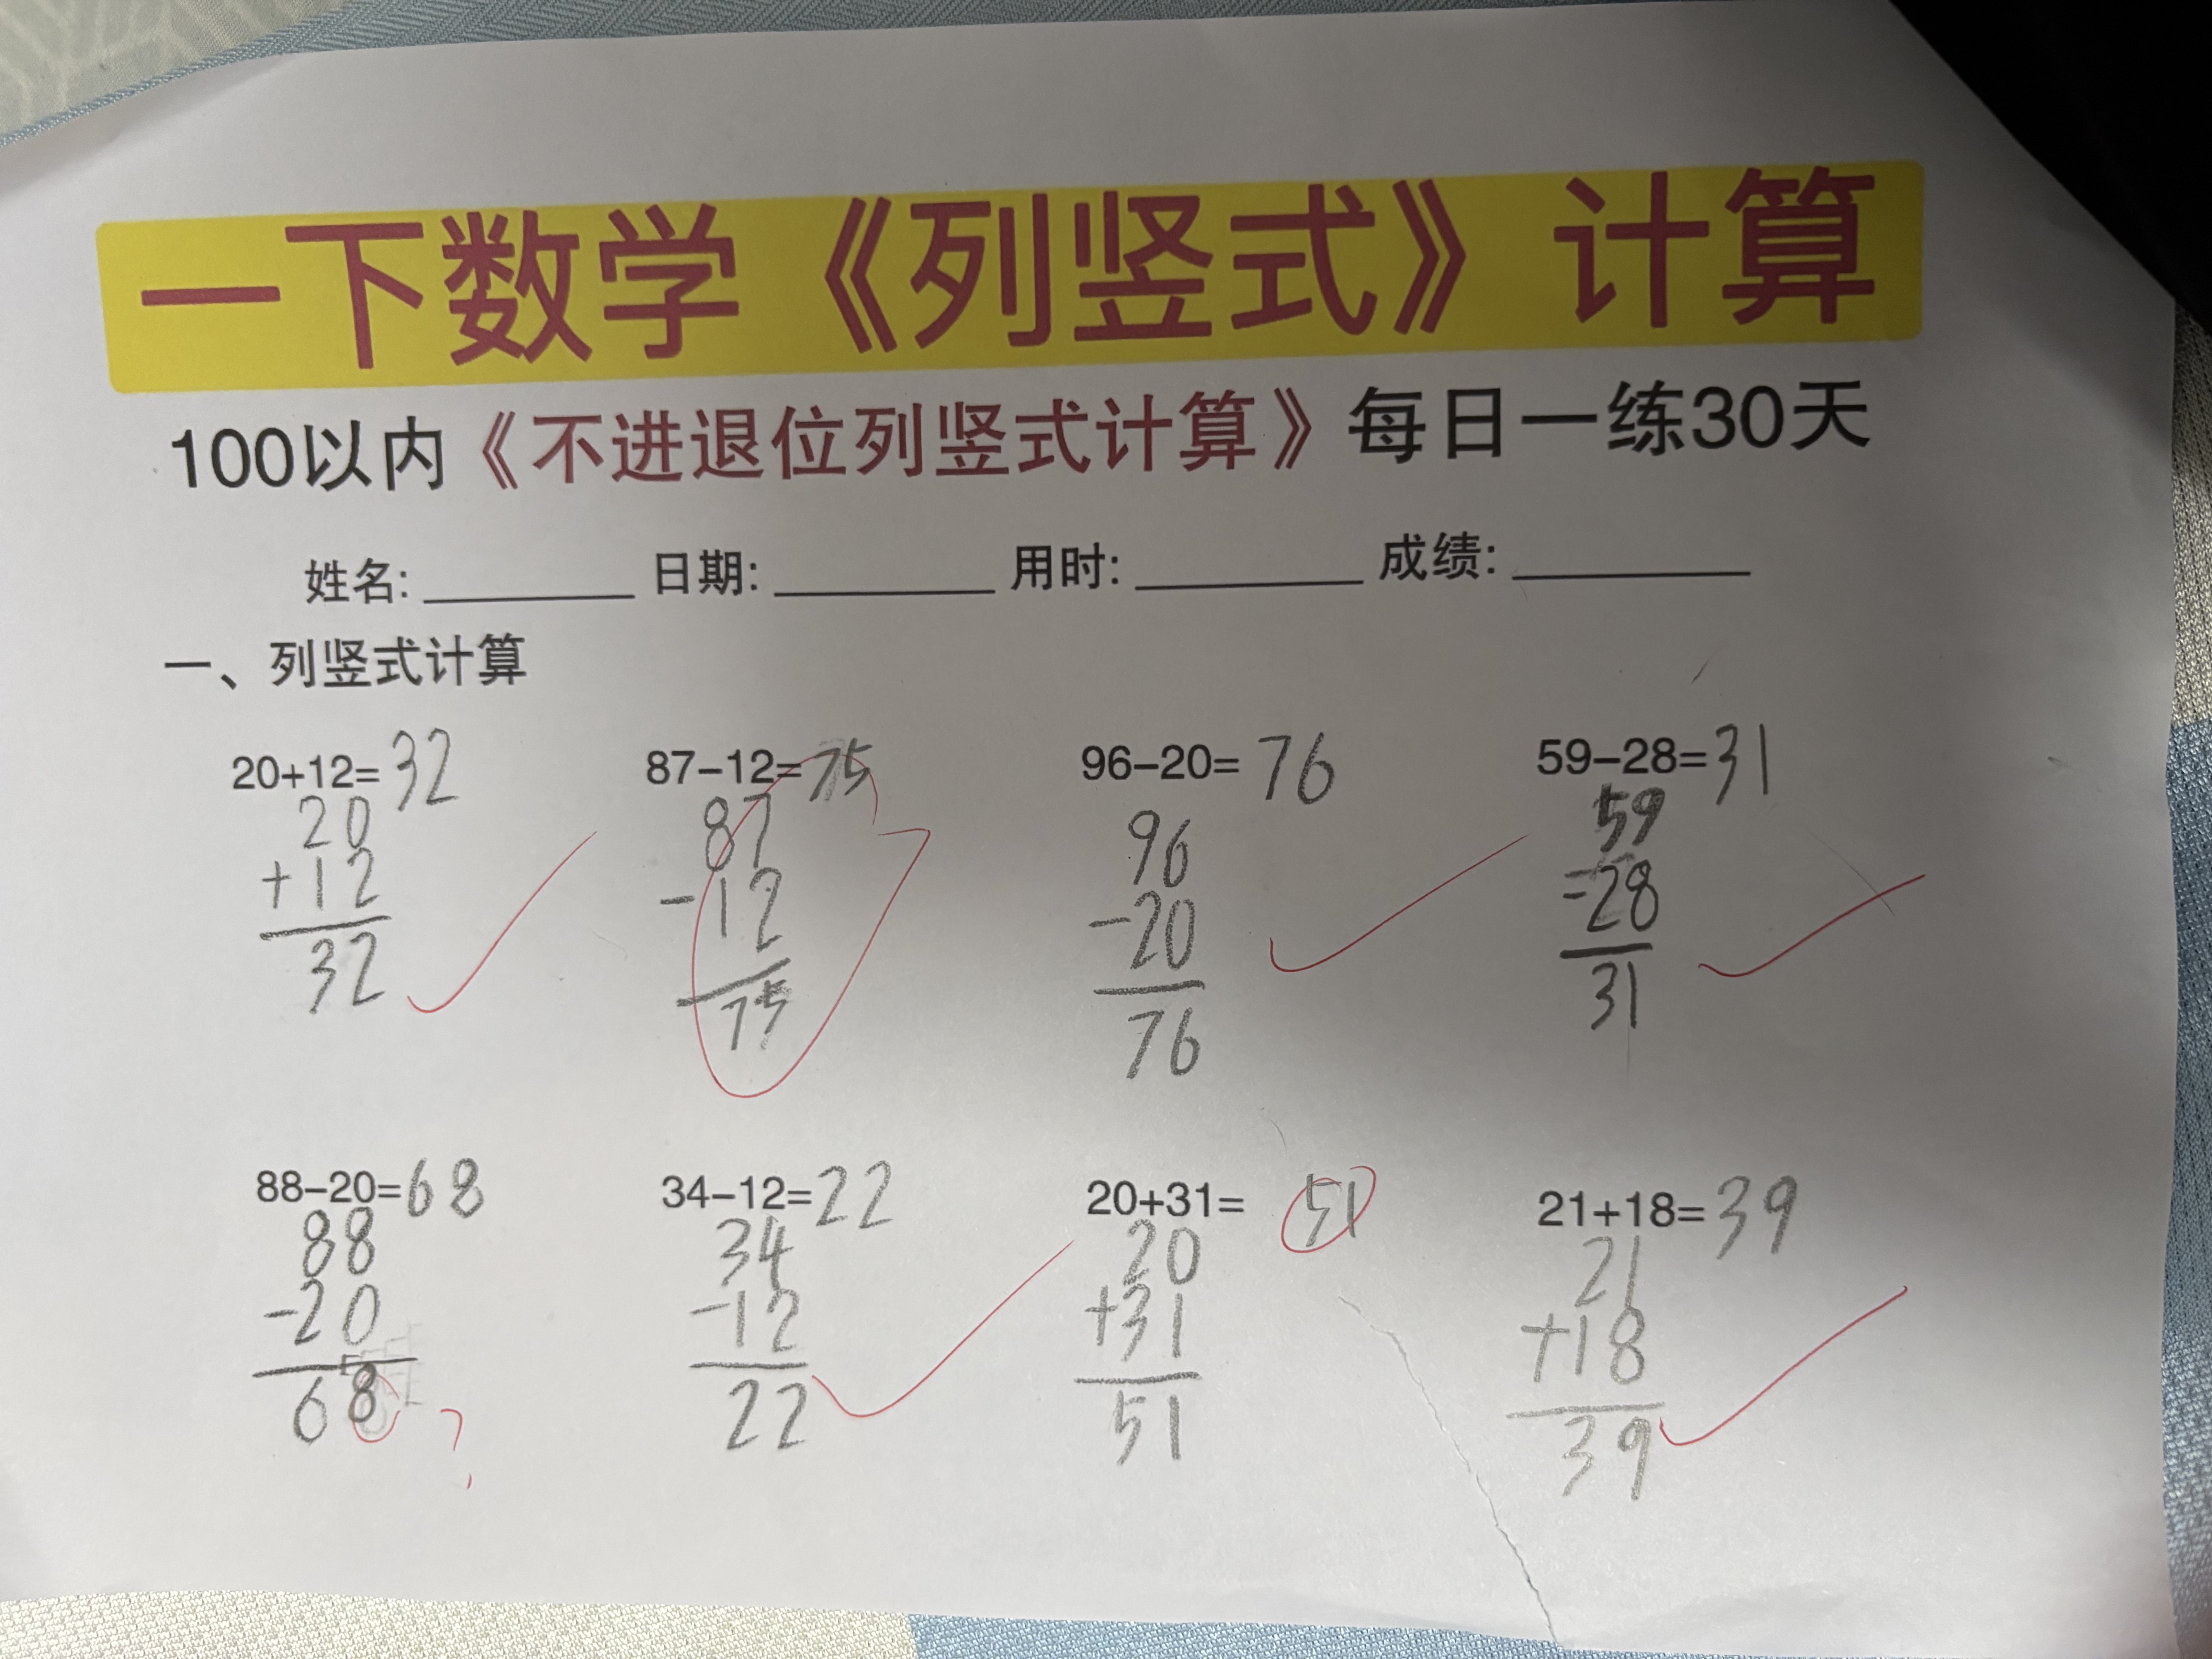 一下数学《列竖式》计算
100以内《不进退位列竖式计算》每日一练30天
姓名: ________ 日期: ________ 用时: ________ 成绩: ________
一、列竖式计算
20+12=32 87-12=75 96-20=76 59-28=31
20 87 96 59
+12 -12 -20 =28
32 75 76 31
88-20=68 34-12=22 20+31= 51 21+18=39
88 34 20 21
-20 -12 +31 +18
68 22 51 39
?